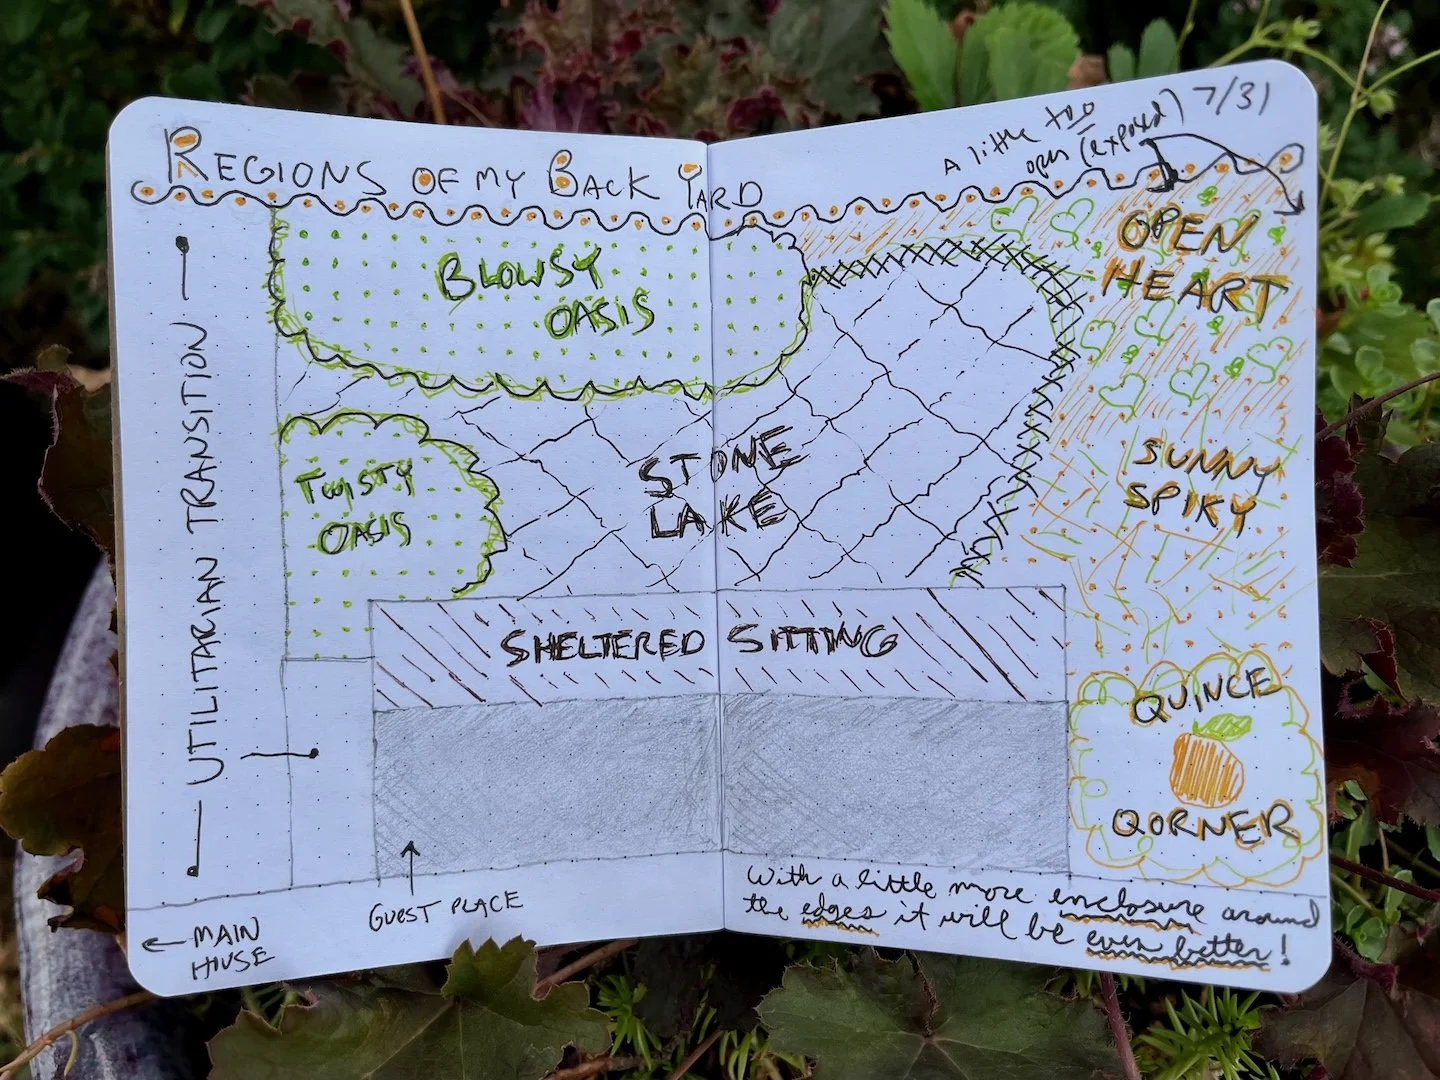 REGIONS OF MY BACK YARD
A little too
open (exposed)
7/31
BLOWSY
OASIS
OPEN
HEART
UTILITARIAN TRANSITION
TWISTY
OASIS
STONE
LAKE
SUNNY
SPIKY
SHELTERED SITTING
QUINCE
QORNER
GUEST PLACE
MAIN
HOUSE
With a little more enclosure around
the edges it will be even better!